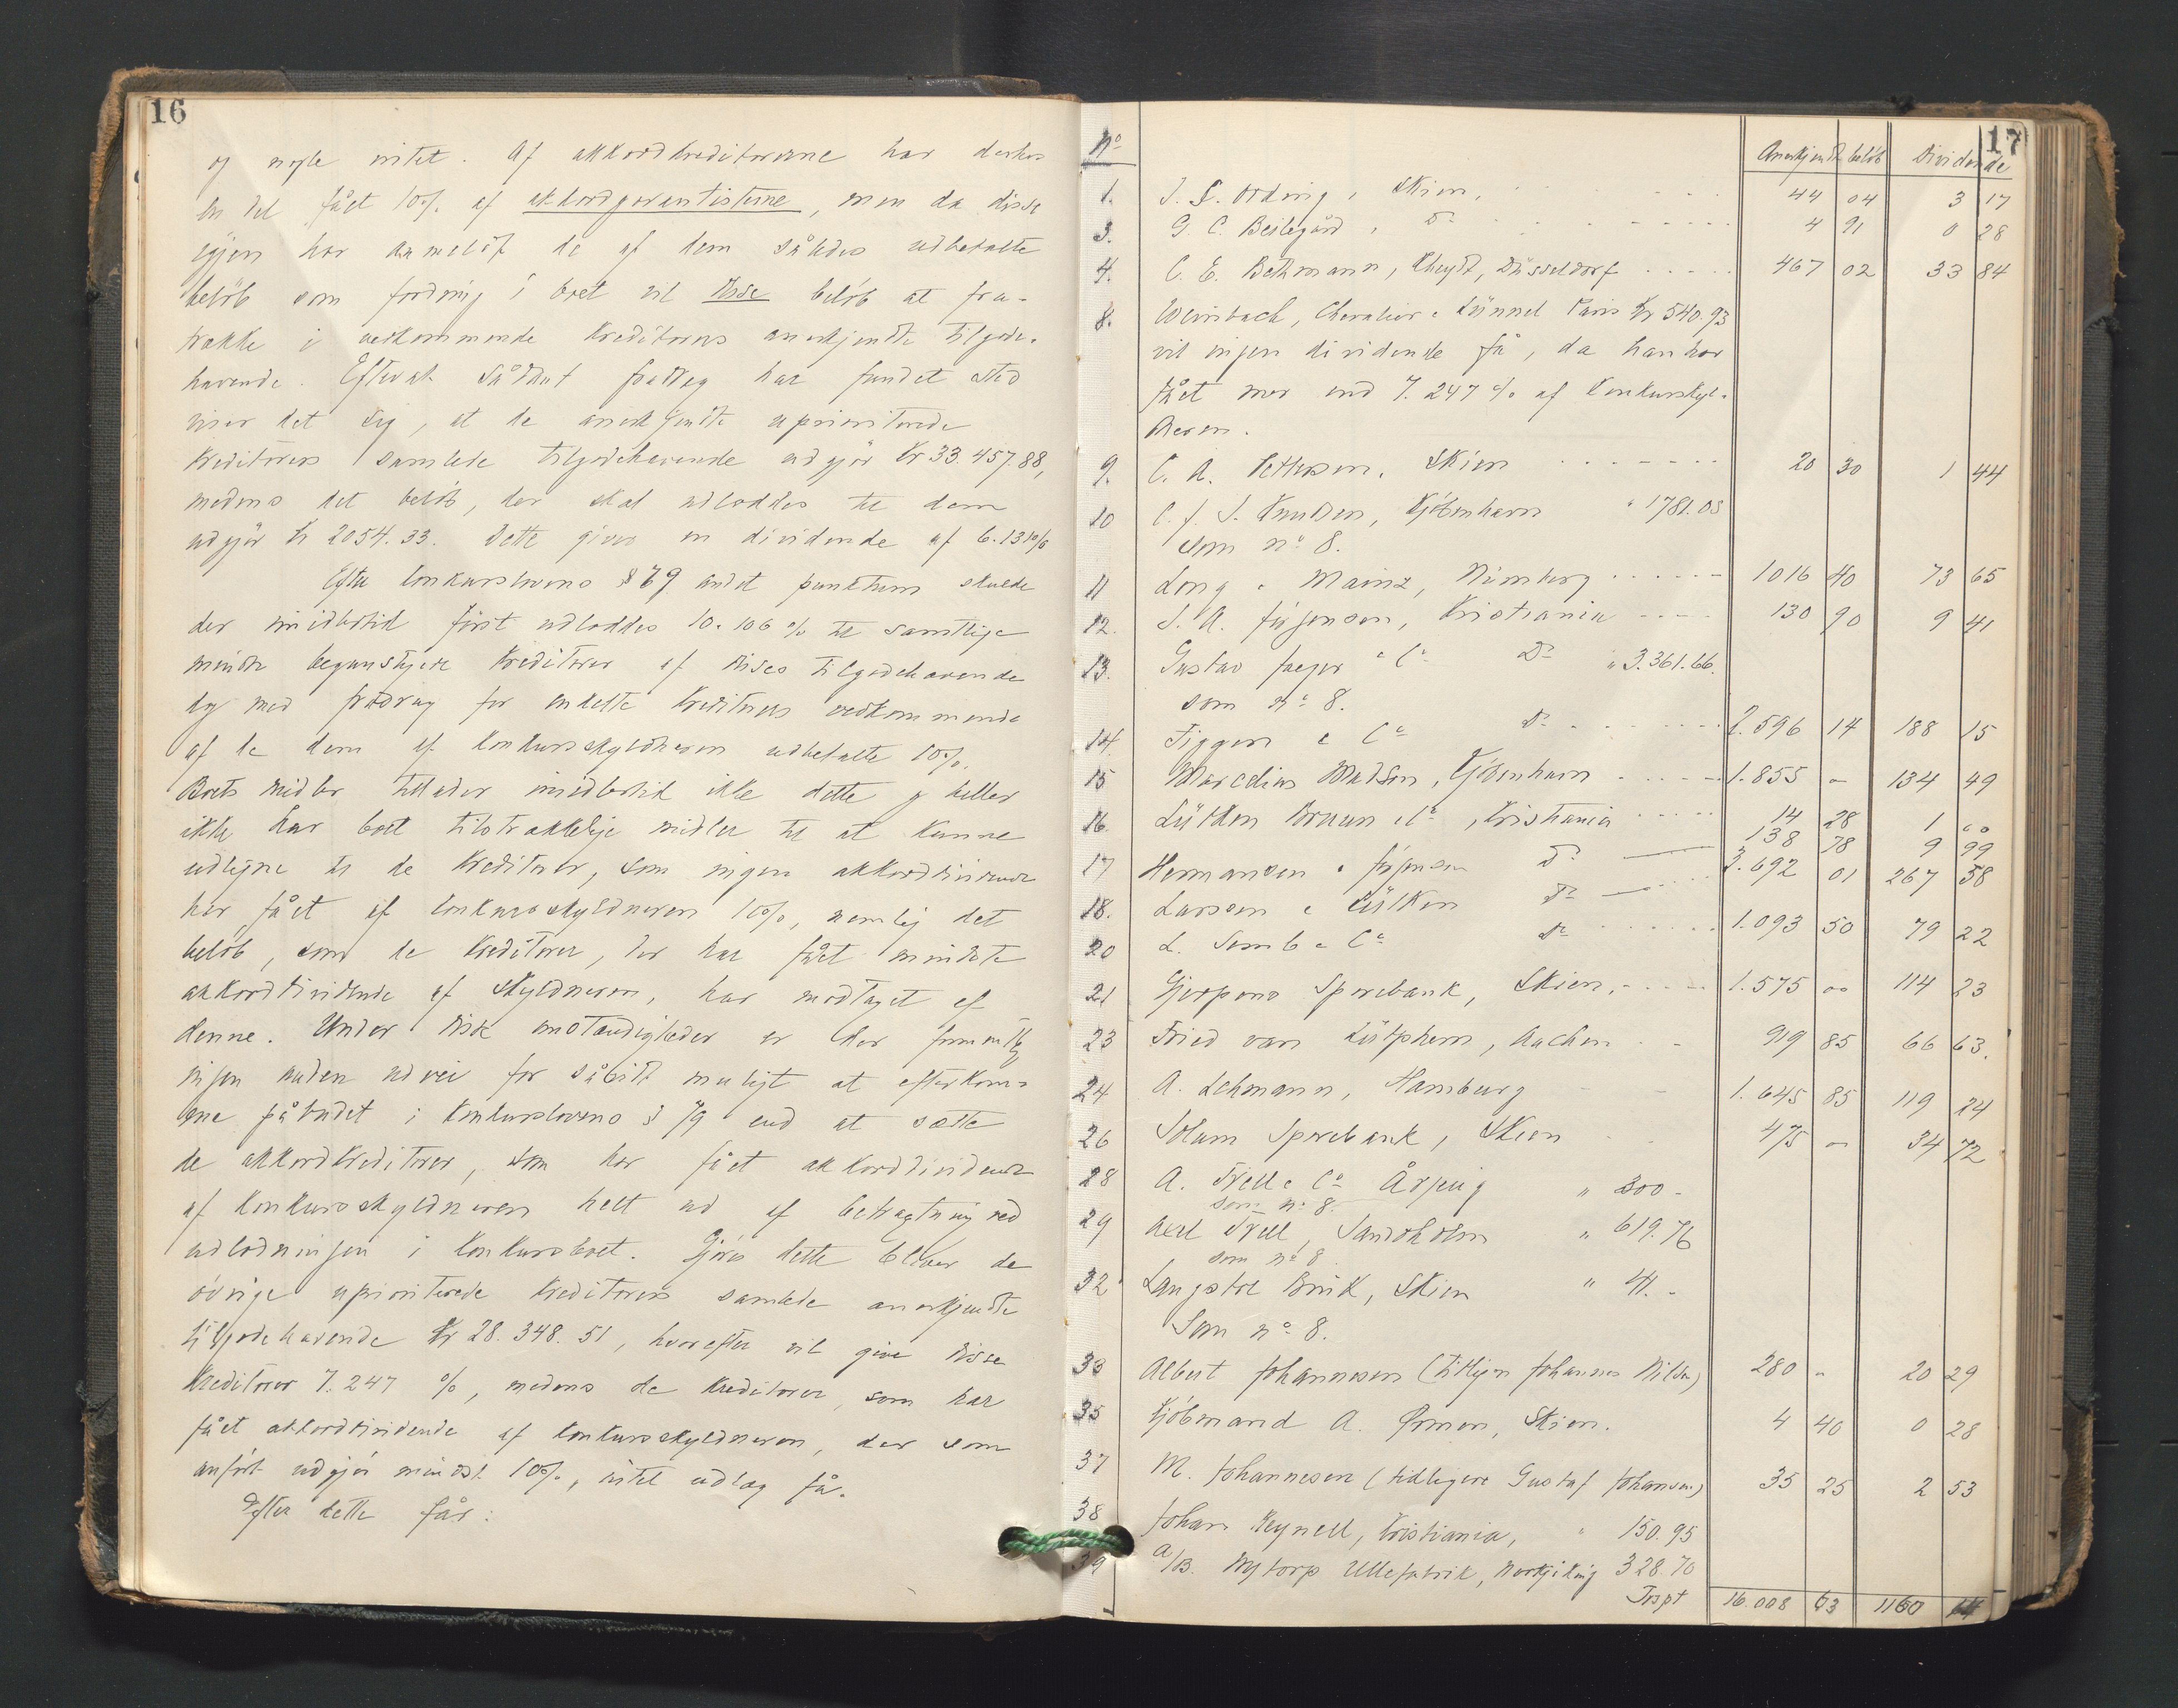 16
og nogle intet. Af akkordkreditorerne har derhos
en del fået 10% af akkordgarantisterne, men da disse
igjen har anmeldt de af dem således udbetalte
beløb som fordring i boet vil disse beløb at fra-
trække i vedkommende kreditorers anerkjendte tilgode-
havende. Efterat sådant fradrag har fundet sted
viser det sig, at de anerkjendte uprioriterede
kreditorers samlede tilgodehavende udgjør Kr 33.457.88,
medens det beløb, der skal udloddes til dem
udgjør Kr 2054.33. Dette giver en dividende af 6.13%
Efter konkurslovens § 79 andet punktum skulde
der imidlertid først udloddes 10.106% til samtlige
mindre begunstigede kreditorer af disses tilgodehavende
dog med fradrag for enkelte kreditorers vedkommende
af de dem af konkursskyldneren udbetalte 10%.
Boets midler tillader imidlertid ikke dette og heller
ikke har boet tilstrækkelige midler til at kunne
udligne til de kreditorer, som ingen akkorddividende
har fået af konkursskyldneren 10%, nemlig det
beløb, som de kreditorer, der har fået mindste
akkorddividende af skyldneren, har modtaget af
denne. Under disse omstændigheder er der formentlig
ingen anden udvei for såvidt muligt at efterkom-
me påbudet i konkurslovens § 79 end at sætte
de akkordkreditorer, som har fået akkorddividende
af konkursskyldneren helt ud af betragtning ved
udlodningen i konkursboet. Gjøres dette bliver de
øvrige uprioriterede kreditorers samlede anerkjendte
tilgodehavende Kr 28.348.51, hvorefter vil give disse
kreditorer 7.247 %, medens de kreditorer, som har
fået akkorddividende af konkursskyldneren, der som
anført udgjør mindst 10%, intet udlæg får.
Efter dette får:
17
No Anerkjendt beløb Dividende
1. J. L. Ording, Skien, 44 04 3 17
3. G. C. Beilegård, Do 4 91 0 28
4. C. E. Bethmann, Rheydt, Düsseldorf 467 02 33 84
8. Weinbach, Chevalier & Lünnel Paris Kr 540.93
vil ingen dividende få, da han har
fået mer end 7.247% af konkursskyl-
neren.
9. C. A. Pettersen, Skien 20 30 1 44
10 C. f. J. Knudsen, Kjøbenhavn " 1781.03
som no 8.
11 Long & Mainz, Nürnberg 1016 40 73 65
12. J. A. Jørgensen, Kristiania 130 90 9 41
13. Gustav Jaeger & Co Do " 3.361.66.
som no 8.
14. Figgen & Co Do 2.596 14 188 15
15 Marcelius Madsen, Kjøbenhavn 1.855 - 134 49
16. Lütken Bruun & Co, Kristiania 14 28 1 00
17 Hermansen & Jørgensen Do 138 78 9 99
18. Larsen & Lütken Do 3.692 01 267 58
20 L. Semb & Co Do 1.093 50 79 22
21 Gjerpens Sparebank, Skien 1.575 00 114 23
23 Fried van Lütphen, Aachen 919 85 66 63.
24 A. Lehmann, Hamburg 1.645 85 119 24
26 Solum Sparebank, Skien 475 - 34 72
28 A. Trell & Co Årjeng " 300 -
som no 8.
29 Axel Trell, Sandsholm " 619.76
som no 8
32 Langstol Bruk, Skien " 41.-
Som no 8.
33 Albert Johannesen (tidligere Johannes Nilsen) 280 - 20 29
35 Kjøbmand A. Ormen, Skien. 4 40 0 28
37 M. Johannesen (tidligere Gustaf Johansen) 35 25 2 53
38 Johan Keynell, Kristiania, " 150.95
39 A/B. Nytorp Ullefabrik, Norrkjöking 328.70
Trspt 16.008 63 1160 14